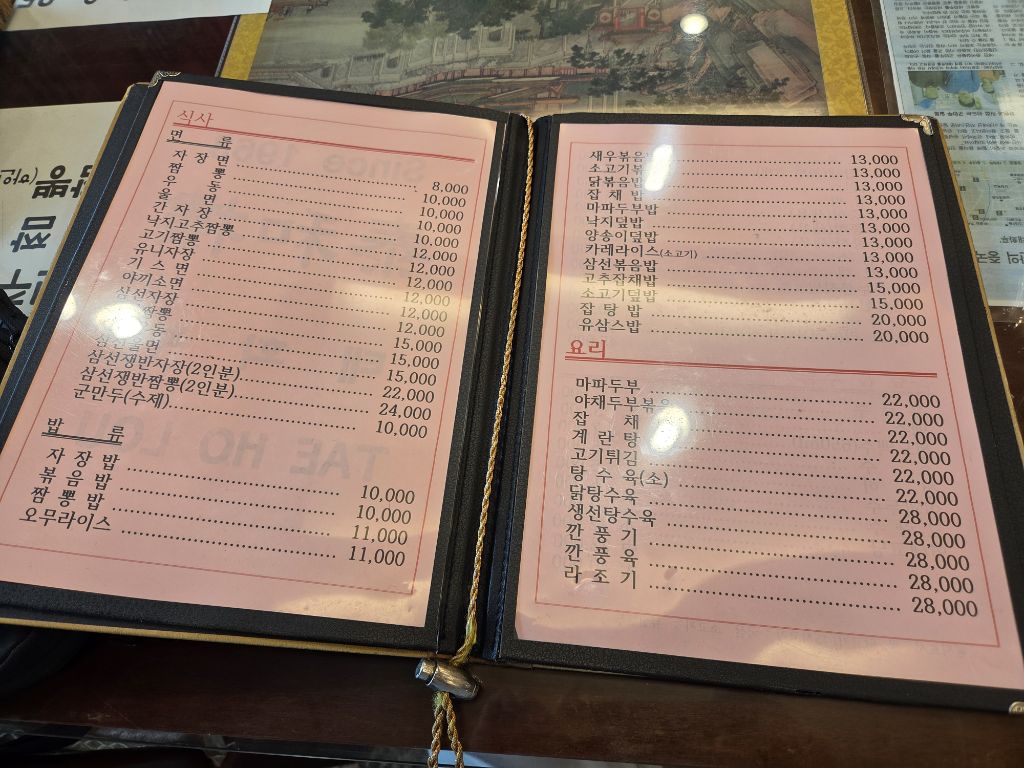 식사
면 류
자 장 면 8,000
짬 뽕 10,000
우 동 10,000
울 면 10,000
간 자 장 10,000
낙지고추짬뽕 12,000
고기짬뽕 12,000
유니자장 12,000
기 스 면 12,000
야끼소면 12,000
삼선자장 15,000
짬뽕 15,000
동 15,000
울면 15,000
삼선쟁반자장(2인분) 22,000
삼선쟁반짬뽕(2인분) 24,000
군만두(수제) 10,000
밥 류
자 장 밥 10,000
볶 음 밥 10,000
짬 뽕 밥 11,000
오무라이스 11,000
새우볶음 13,000
소고기볶 13,000
닭볶음밥 13,000
잡 채 밥 13,000
마파두부밥 13,000
낙지덮밥 13,000
양송이덮밥 13,000
카레라이스(소고기) 13,000
삼선볶음밥 13,000
고추잡채밥 15,000
소고기덮밥 15,000
잡 탕 밥 20,000
유삼스밥 20,000
요리
마파두부 22,000
야채두부볶음 22,000
잡 채 22,000
계 란 탕 22,000
고기튀김 22,000
탕 수 육(소) 22,000
닭탕수육 28,000
생선탕수육 28,000
깐 풍 기 28,000
깐 풍 육 28,000
라 조 기 28,000